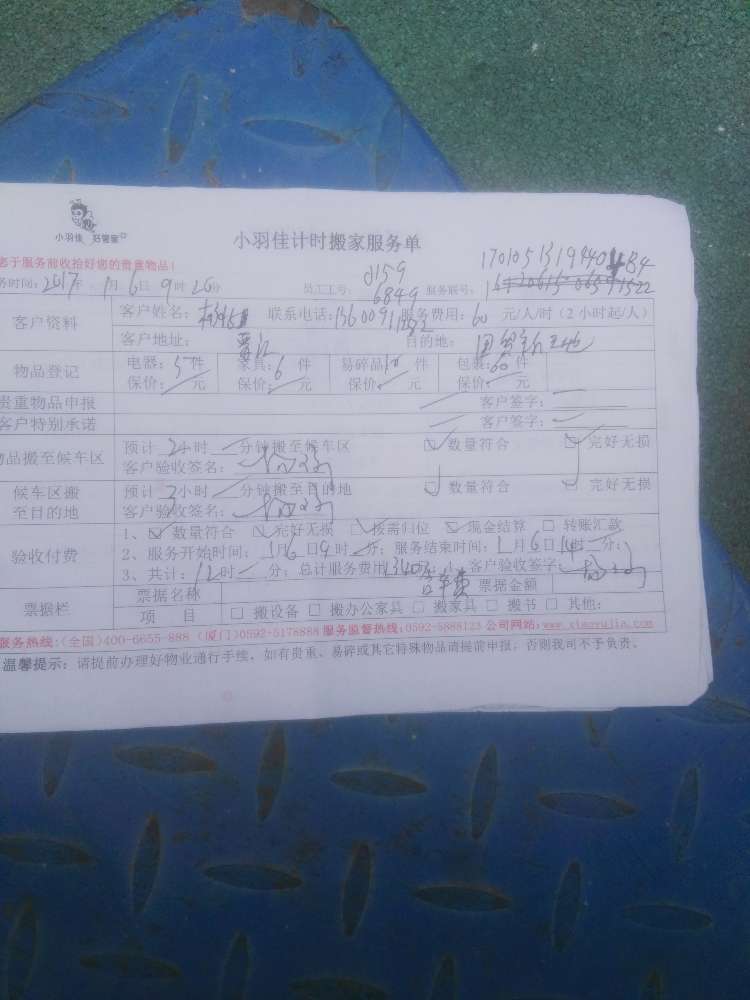 小羽佳 好管家
小羽佳计时搬家服务单
于服务前收拾好您的贵重物品!
17010513194401
务时间:2017年 1月6日9时20分 员工工号: 0159 6849 服务联号:
客户资料 客户姓名: 联系电话: 服务费用:60元/人/时(2小时起/人)
客户地址: 目的地: 国贸新天地
物品登记 电器:5件 家具:6件 易碎品10件 包装:60件
保价: 元 保价: 元 保价: 元 保价: 元
贵重物品申报 客户签字:
客户特别承诺 客户签字:
物品搬至候车区 预计2小时 分钟搬至候车区 数量符合 完好无损
客户验收签名:
候车区搬至目的地 预计2小时 分钟搬至目的地 数量符合 完好无损
客户验收签名:
验收付费 1、数量符合 完好无损 按需归位 现金结算 转账汇款
2、服务开始时间:1月6日9时 分;服务结束时间:1月6日14时 分;
3、共计:12时 分;总计服务费用1340元 客户验收签字:
含车费
票据栏 票据名称 票据金额
项 目 搬设备 搬办公家具 搬家具 搬书 其他:
服务热线:(全国)400-6655-888 (厦门)0592-5178888 服务监督热线:0592-5888123 公司网站:www.xiaoyujia.com
温馨提示:请提前办理好物业通行手续,如有贵重、易碎或其它特殊物品请提前申报,否则我司不予负责。